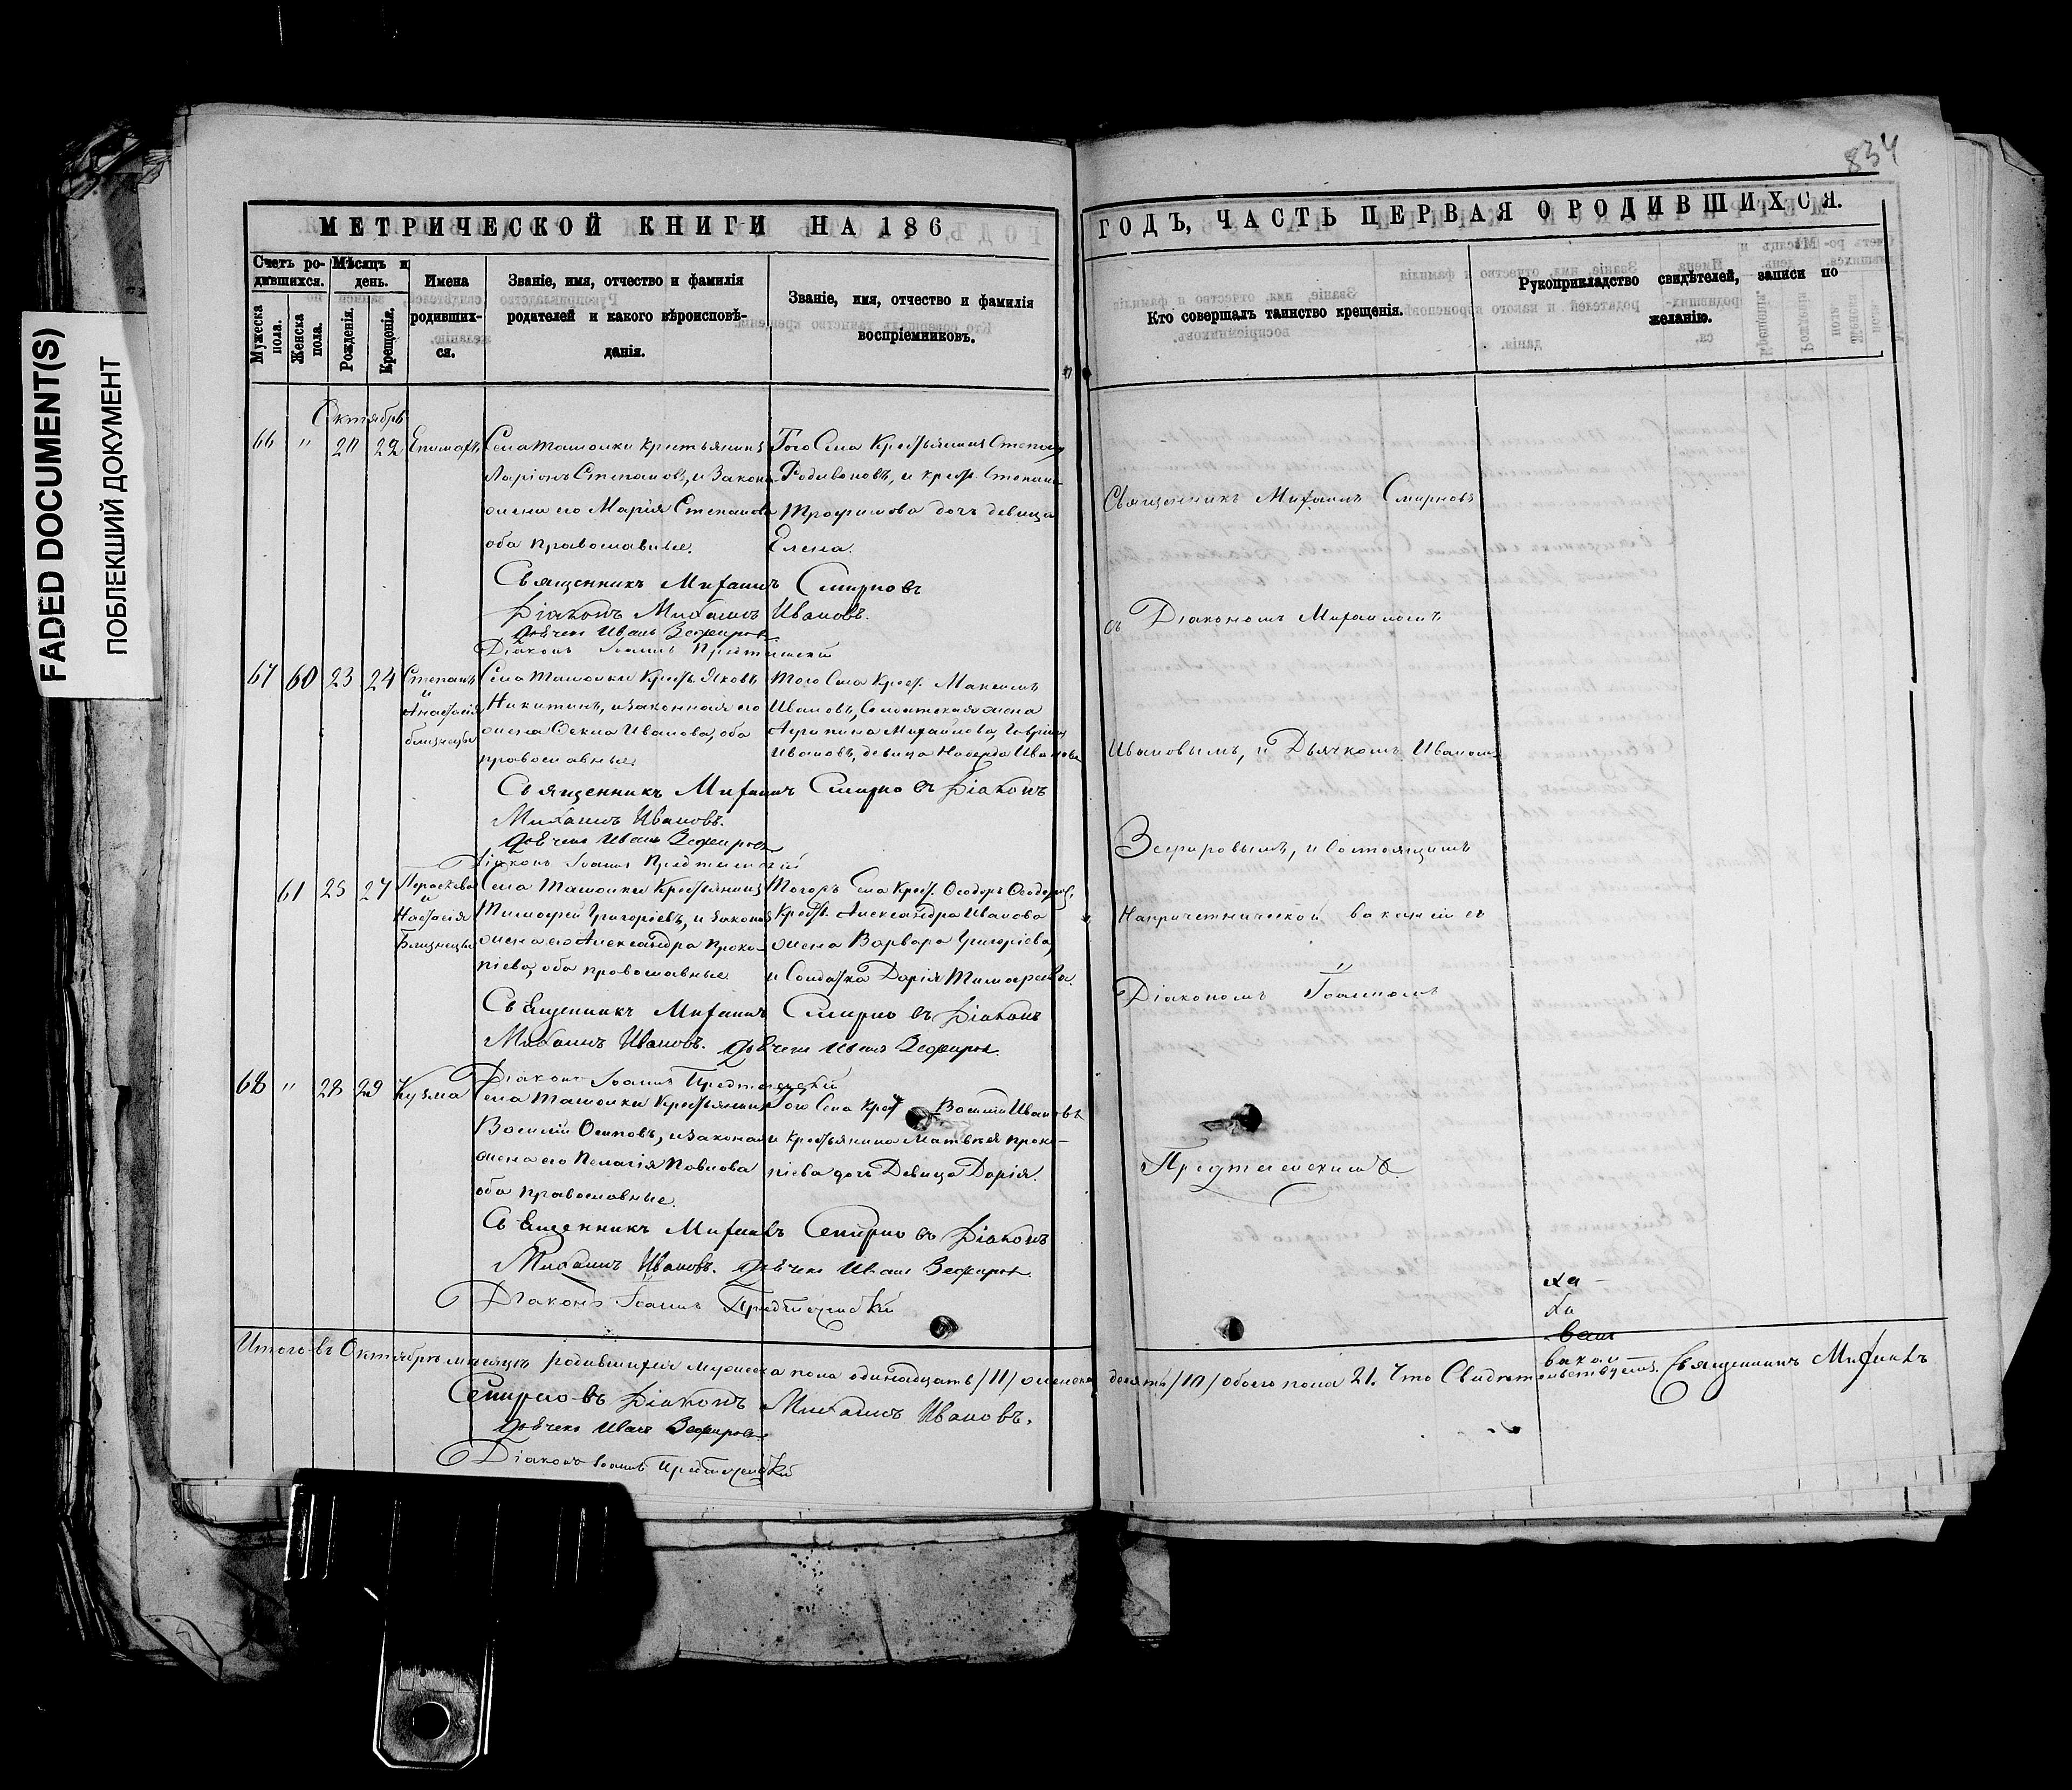 834
FADED DOCUMENT(S)
ПОБЛЕКШИЙ ДОКУМЕНТ
МЕТРИЧЕСКОЙ КНИГИ НА 186
Счетъ ро-
дившихся.
Мужеска пола.
Женска пола.
Мѣсяцъ и
день.
Рожденія.
Крещенія.
Имена
родивших-
ся.
Званіе, имя, отчество и фамилія
родителей и какого вѣроисповѣ-
данія.
Званіе, имя, отчество и фамилія
воспріемниковъ.
Октябрь
66 " 20 22 Епимахъ
Села Ташолки крестьянинъ
Ларіонъ Степановъ, и закон
жена его Марія Степанова
оба православные.
Того Села Крестьянинъ Степанъ
Родивоновъ, и крест. Степана
Трофимова дочь девица
Елена.
Священникъ Михаилъ Смирновъ
Діаконъ Михаилъ Ивановъ.
Дьячекъ Иванъ Зефировъ
Діаконъ Іоаннъ Предтеченскій
67 60 23 24 Степанъ
и
Анастасія
близнецы
Села Ташолки Крест. Яковъ
Никитинъ, и законная его
жена Фекла Иванова, оба
православные.
Того Села Крест. Максимъ
Ивановъ, Солдатская жена
Агрипина Михайлова, Гавріилъ
Ивановъ, девица Надежда Иванова
Священникъ Михаилъ Смирновъ Діаконъ
Михаилъ Ивановъ.
Дьячекъ Иванъ Зефировъ
Діаконъ Іоаннъ Предтеченскій
61 25 27 Параскева
и
Настасія
Близнецы
Села Ташолки Крестьянинъ
Тимофей Григоріевъ, и законая
жена его Александра Проко-
піева, оба православные
Тогожъ Села Крест. Феодоръ Феодоров.
Крест. Александра Иванова
жена Варвара Григоріева,
и Солдатка Дарія Тимофеева.
Священникъ Михаилъ Смирновъ Діаконъ
Михаилъ Ивановъ. Дьячекъ Иванъ Зефировъ.
Діаконъ Іоаннъ Предтеченскій
68 " 28 29 Кузма
Села Ташолки Крестьянинъ
Василій Осиповъ, и законая
жена его Пелагія Павлова
оба православные.
Того Села Крест Василій Ивановъ
и Крестьянина Матвея Проко-
піева дочь Девица Дарія.
Священникъ Михаилъ Смирновъ Діаконъ
Михаилъ Ивановъ. Дьячекъ Иванъ Зефировъ.
Діаконъ Іоаннъ Предтеченскій
Итого въ Октябрѣ месяцѣ родившихся мужеска пола одинадцать /11/ женска
Смирновъ Діаконъ Михаилъ Ивановъ.
Дьячекъ Иванъ Зефировъ.
Діаконъ Іоаннъ Предтеченскій
ГОДЪ, ЧАСТЬ ПЕРВАЯ О РОДИВШИХСЯ.
Кто совершалъ таинство крещенія.
Рукоприкладство свидѣтелей, записи по
желанію.
Священникъ Михаилъ Смирновъ
съ Діакономъ Михаиломъ
Ивановымъ, и Дьячкомъ Иваномъ
Зефировымъ, и состоящимъ
На причетнической вакансіи
Діакономъ Іоанномъ
Предтеченскимъ.
десять /10/ обоего пола 21. Что Свидетельствуемъ, Священникъ Михаилъ